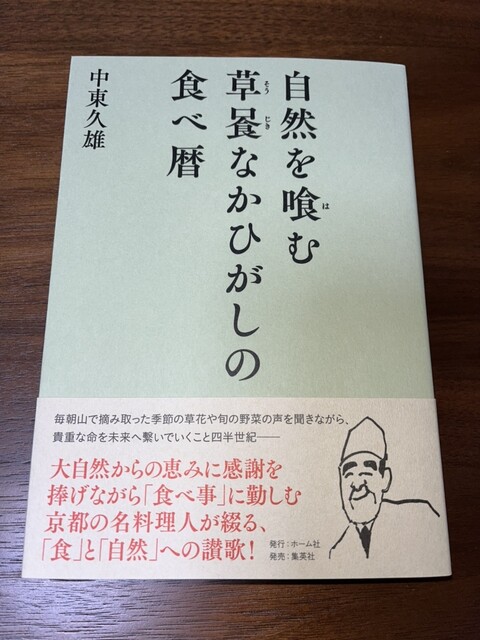 自然を喰む
草喰なかひがしの
食べ暦
中東久雄
毎朝山で摘み取った季節の草花や旬の野菜の声を聞きながら、
貴重な命を未来へ繋いでいくこと四半世紀──
大自然からの恵みに感謝を
捧げながら「食べ事」に勤しむ
京都の名料理人が綴る、
「食」と「自然」への讃歌!
発行:ホーム社
発売:集英社
は
そう
じき